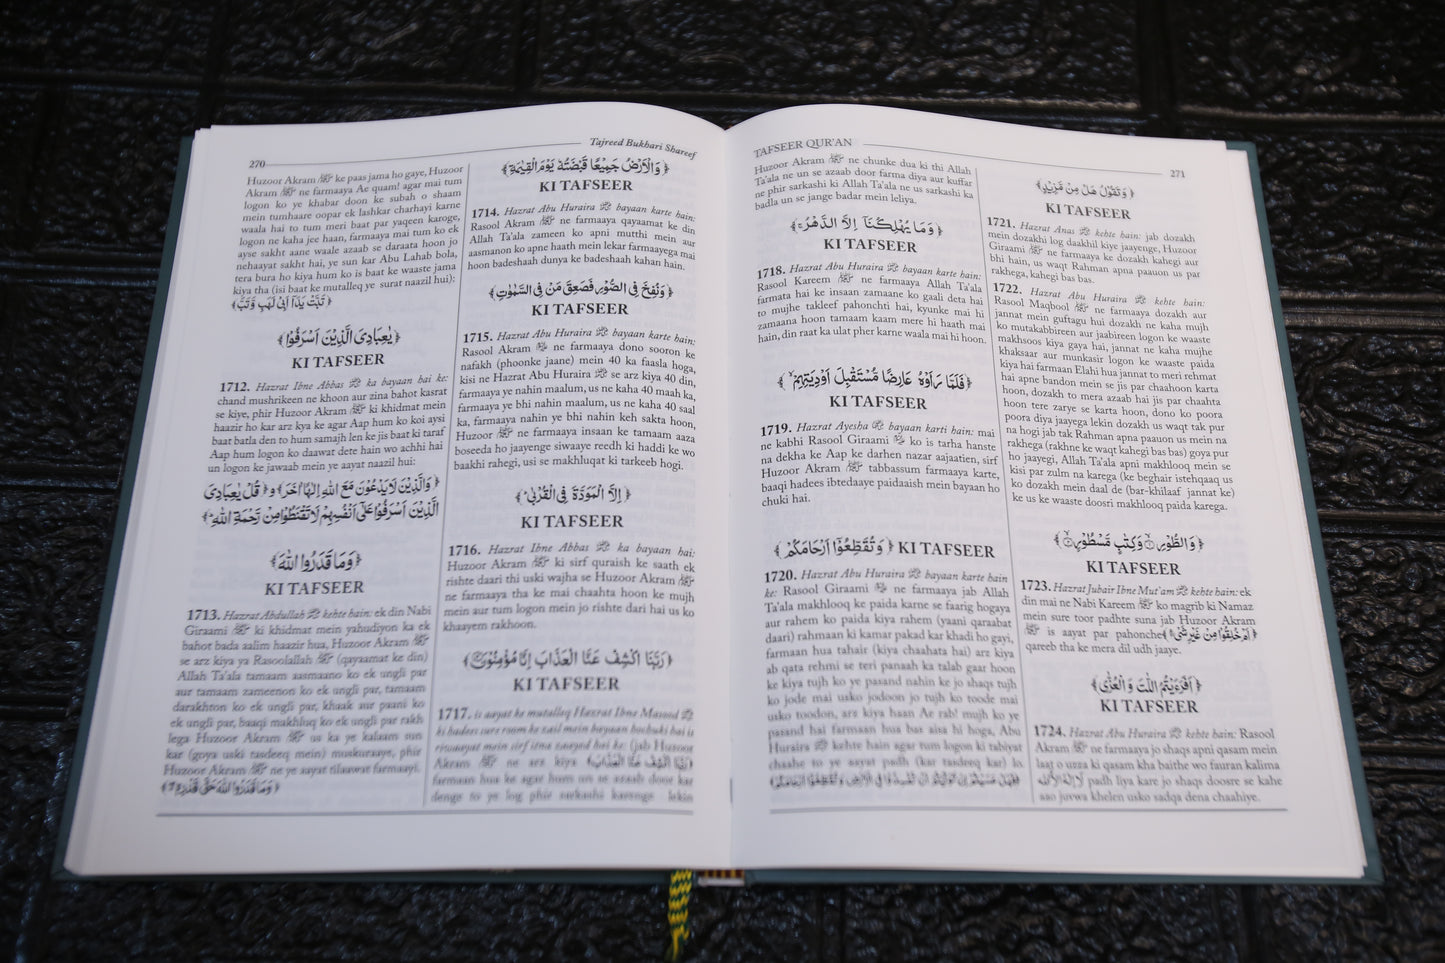 270
Tajreed Bukhari Shareef
Huzoor Akram ﷺ ke paas jama ho gaye, Huzoor
Akram ﷺ ne farmaaya Ae quam! agar mai tum
logon ko ye khabar doon ke subah o shaam
mein tumhaare oopar ek lashkar charhayi karne
waala hai to tum meri baat par yaqeen karoge,
logon ne kaha jee haan, farmaaya mai tum ko ek
ayse sakht aane waale azaab se daraata hoon jo
nehaayat sakht hai, ye sun kar Abu Lahab bola,
tera bura ho kiya hum ko is baat ke waaste jama
kiya tha (isi baat ke mutalleq ye surat naazil hui):
﴿تَبَّتْ يَدَآ اَبِىْ لَهَبٍ وَّتَبَّ﴾
﴿يٰعِبَادِىَ الَّذِيْنَ اَسْرَفُوْا﴾
KI TAFSEER
1712. Hazrat Ibne Abbas ؓ ka bayaan hai ke:
chand mushrikeen ne khoon aur zina bahot kasrat
se kiye, phir Huzoor Akram ﷺ ki khidmat mein
haazir ho kar arz kya ke agar Aap hum ko koi aysi
baat batla den to hum samajh len ke jis baat ki taraf
Aap hum logon ko daawat dete hain wo achhi hai
un logon ke jawaab mein ye aayat naazil hui:
﴿وَالَّذِيْنَ لَا يَدْعُوْنَ مَعَ اللهِ اِلٰهًا اٰخَرَ﴾ و ﴿قُلْ يٰعِبَادِىَ
الَّذِيْنَ اَسْرَفُوْا عَلٰٓى اَنْفُسِهِمْ لَا تَقْنَطُوْا مِنْ رَّحْمَةِ اللهِ﴾
﴿وَمَا قَدَرُوا اللهَ﴾
KI TAFSEER
1713. Hazrat Abdullah ؓ kehte hain: ek din Nabi
Giraami ﷺ ki khidmat mein yahudiyon ka ek
bahot bada aalim haazir hua, Huzoor Akram ﷺ
se arz kiya ya Rasoolallah ﷺ (qayaamat ke din)
Allah Ta'ala tamaam aasmaano ko ek ungli par
aur tamaam zameenon ko ek ungli par, tamaam
darakhton ko ek ungli par, khaak aur paani ko
ek ungli par, baaqi makhluq ko ek ungli par rakh
lega Huzoor Akram ﷺ us ka ye kalaam sun
kar (goya uski tasdeeq mein) muskuraaye, phir
Huzoor Akram ﷺ ne ye aayat tilaawat farmaayi.
﴿وَمَا قَدَرُوا اللهَ حَقَّ قَدْرِهٖ﴾
﴿وَالْاَرْضُ جَمِيْعًا قَبْضَتُهٗ يَوْمَ الْقِيٰمَةِ﴾
KI TAFSEER
1714. Hazrat Abu Huraira ؓ bayaan karte hain:
Rasool Akram ﷺ ne farmaaya qayaamat ke din
Allah Ta'ala zameen ko apni mutthi mein aur
aasmanon ko apne haath mein lekar farmaayega mai
hoon badeshaah dunya ke badeshaah kahan hain.
﴿وَنُفِخَ فِى الصُّوْرِ فَصَعِقَ مَنْ فِى السَّمٰوٰتِ﴾
KI TAFSEER
1715. Hazrat Abu Huraira ؓ bayaan karte hain:
Rasool Akram ﷺ ne farmaaya dono sooron ke
nafakh (phoonke jaane) mein 40 ka faasla hoga,
kisi ne Hazrat Abu Huraira ؓ se arz kiya 40 din,
farmaaya ye nahin maalum, us ne kaha 40 maah ka,
farmaaya ye bhi nahin maalum, us ne kaha 40 saal
ka, farmaaya nahin ye bhi nahin keh sakta hoon,
Huzoor ﷺ ne farmaaya insaan ke tamaam aaza
boseeda ho jaayenge siwaaye reedh ki haddi ke wo
baakhi rahegi, usi se makhluqat ki tarkeeb hogi.
﴿اِلَّا الْمَوَدَّةَ فِى الْقُرْبٰى﴾
KI TAFSEER
1716. Hazrat Ibne Abbas ؓ ka bayaan hai:
Huzoor Akram ﷺ ki sirf quraish ke saath ek
rishte daari thi uski wajha se Huzoor Akram ﷺ
ne farmaaya tha ke mai chaahta hoon ke mujh
mein aur tum logon mein jo rishte dari hai us ko
khaayem rakhoon.
﴿رَبَّنَا اكْشِفْ عَنَّا الْعَذَابَ اِنَّا مُؤْمِنُوْنَ﴾
KI TAFSEER
1717. is aayat ke mutalleq Hazrat Ibne Masood ؓ
ki hadees sure room ke zail mein bayaan hochuki hai is
riwaayat mein sirf itna zaayed hai ke: (jab Huzoor
Akram ﷺ ne arz kiya ﴿رَبَّنَا اكْشِفْ عَنَّا الْعَذَابَ﴾
farmaan hua ke agar hum un se azaab door kar
denge to ye log phir sarkashi karenge lekin
TAFSEER QUR'AN
271
Huzoor Akram ﷺ ne chunke dua ki thi Allah
Ta'ala ne un se azaab door farma diya aur kuffar
ne phir sarkashi ki Allah Ta'ala ne us sarkashi ka
badla un se jange badar mein leliya.
﴿وَمَا يُهْلِكُنَآ اِلَّا الدَّهْرُ﴾
KI TAFSEER
1718. Hazrat Abu Huraira ؓ bayaan karte hain:
Rasool Kareem ﷺ ne farmaaya Allah Ta'ala
farmata hai ke insaan zamaane ko gaali deta hai
to mujhe takleef pahonchti hai, kyunke mai hi
zamaana hoon tamaam kaam mere hi haath mai
hain, din raat ka ulat pher karne waala mai hi hoon.
﴿فَلَمَّا رَاَوْهُ عَارِضًا مُّسْتَقْبِلَ اَوْدِيَتِهِمْ﴾
KI TAFSEER
1719. Hazrat Ayesha ؓ bayaan karti hain: mai
ne kabhi Rasool Giraami ﷺ ko is tarha hanste
na dekha ke Aap ke darhen nazar aajaatien, sirf
Huzoor Akram ﷺ tabbassum farmaaya karte,
baaqi hadees ibtedaaye paidaaish mein bayaan ho
chuki hai.
﴿وَتُقَطِّعُوْٓا اَرْحَامَكُمْ﴾ KI TAFSEER
1720. Hazrat Abu Huraira ؓ bayaan karte hain
ke: Rasool Giraami ﷺ ne farmaaya jab Allah
Ta'ala makhlooq ke paida karne se faarig hogaya
aur rahem ko paida kiya rahem (yaani qaraabat
daari) rahmaan ki kamar pakad kar khadi ho gayi,
farmaan hua tahair (kiya chaahata hai) arz kiya
ab qata rehmi se teri panaah ka talab gaar hoon
ke kiya tujh ko ye pasand nahin ke jo shaqs tujh
ko jode mai usko jodoon jo tujh ko toode mai
usko toodon, arz kiya haan Ae rab! mujh ko ye
pasand hai farmaan hua bas aisa hi hoga, Abu
Huraira ؓ kehte hain agar tum logon ki tabiyat
chaahe to ye aayat padh (kar tasdeeq kar) lo
﴿فَهَلْ عَسَيْتُمْ اِنْ تَوَلَّيْتُمْ اَنْ تُفْسِدُوْا فِى الْاَرْضِ وَتُقَطِّعُوْٓا اَرْحَامَكُمْ﴾
﴿وَتَقُوْلُ هَلْ مِنْ مَّزِيْدٍ﴾
KI TAFSEER
1721. Hazrat Anas ؓ kehte hain: jab dozakh
mein dozakhi log daakhil kiye jaayenge, Huzoor
Giraami ﷺ ne farmaaya ke dozakh kahegi aur
bhi hain, us waqt Rahman apna paauon us par
rakhega, kahegi bas bas.
1722. Hazrat Abu Huraira ؓ kehte hain:
Rasool Maqbool ﷺ ne farmaaya dozakh aur
jannat mein guftagu hui dozakh ne kaha mujh
ko mutakabbireen aur jaabireen logon ke waaste
makhsoos kiya gaya hai, jannat ne kaha mujhe
khaksaar aur munkasir logon ke waaste paida
kiya hai farmaan Elahi hua jannat to meri rehmat
hai apne bandon mein se jis par chaahoon karta
hoon, dozakh to mera azaab hai jis par chaahta
hoon tere zarye se karta hoon, dono ko poora
poora diya jaayega lekin dozakh us waqt tak pur
na hogi jab tak Rahman apna paauon us mein na
rakhega (rakhne ke waqt kahegi bas bas) goya pur
ho jaayegi, Allah Ta'ala apni makhlooq mein se
kisi par zulm na karega (ke beghair istehqaaq us
ko dozakh mein daal de (bar-khilaaf jannat ke)
ke us ke waaste doosri makhlooq paida karega.
﴿وَالطُّوْرِ وَكِتٰبٍ مَّسْطُوْرٍ﴾
KI TAFSEER
1723. Hazrat Jubair Ibne Mut'am ؓ kehte hain: ek
din mai ne Nabi Kareem ﷺ ko magrib ki Namaz
mein sure toor padhte suna jab Huzoor Akram
ﷺ is aayat par pahonche ﴿اَمْ خُلِقُوْا مِنْ غَيْرِ شَىْءٍ﴾
qareeb tha ke mera dil udh jaaye.
﴿اَفَرَءَيْتُمُ اللّٰتَ وَالْعُزّٰى﴾
KI TAFSEER
1724. Hazrat Abu Huraira ؓ kehte hain: Rasool
Akram ﷺ ne farmaaya jo shaqs apni qasam mein
laat o uzza ki qasam kha baithe wo fauran kalima
لَا اِلٰهَ اِلَّا اللهُ padh liya kare jo shaqs doosre se kahe
aao juvwa khelen usko sadqa dena chaahiye.